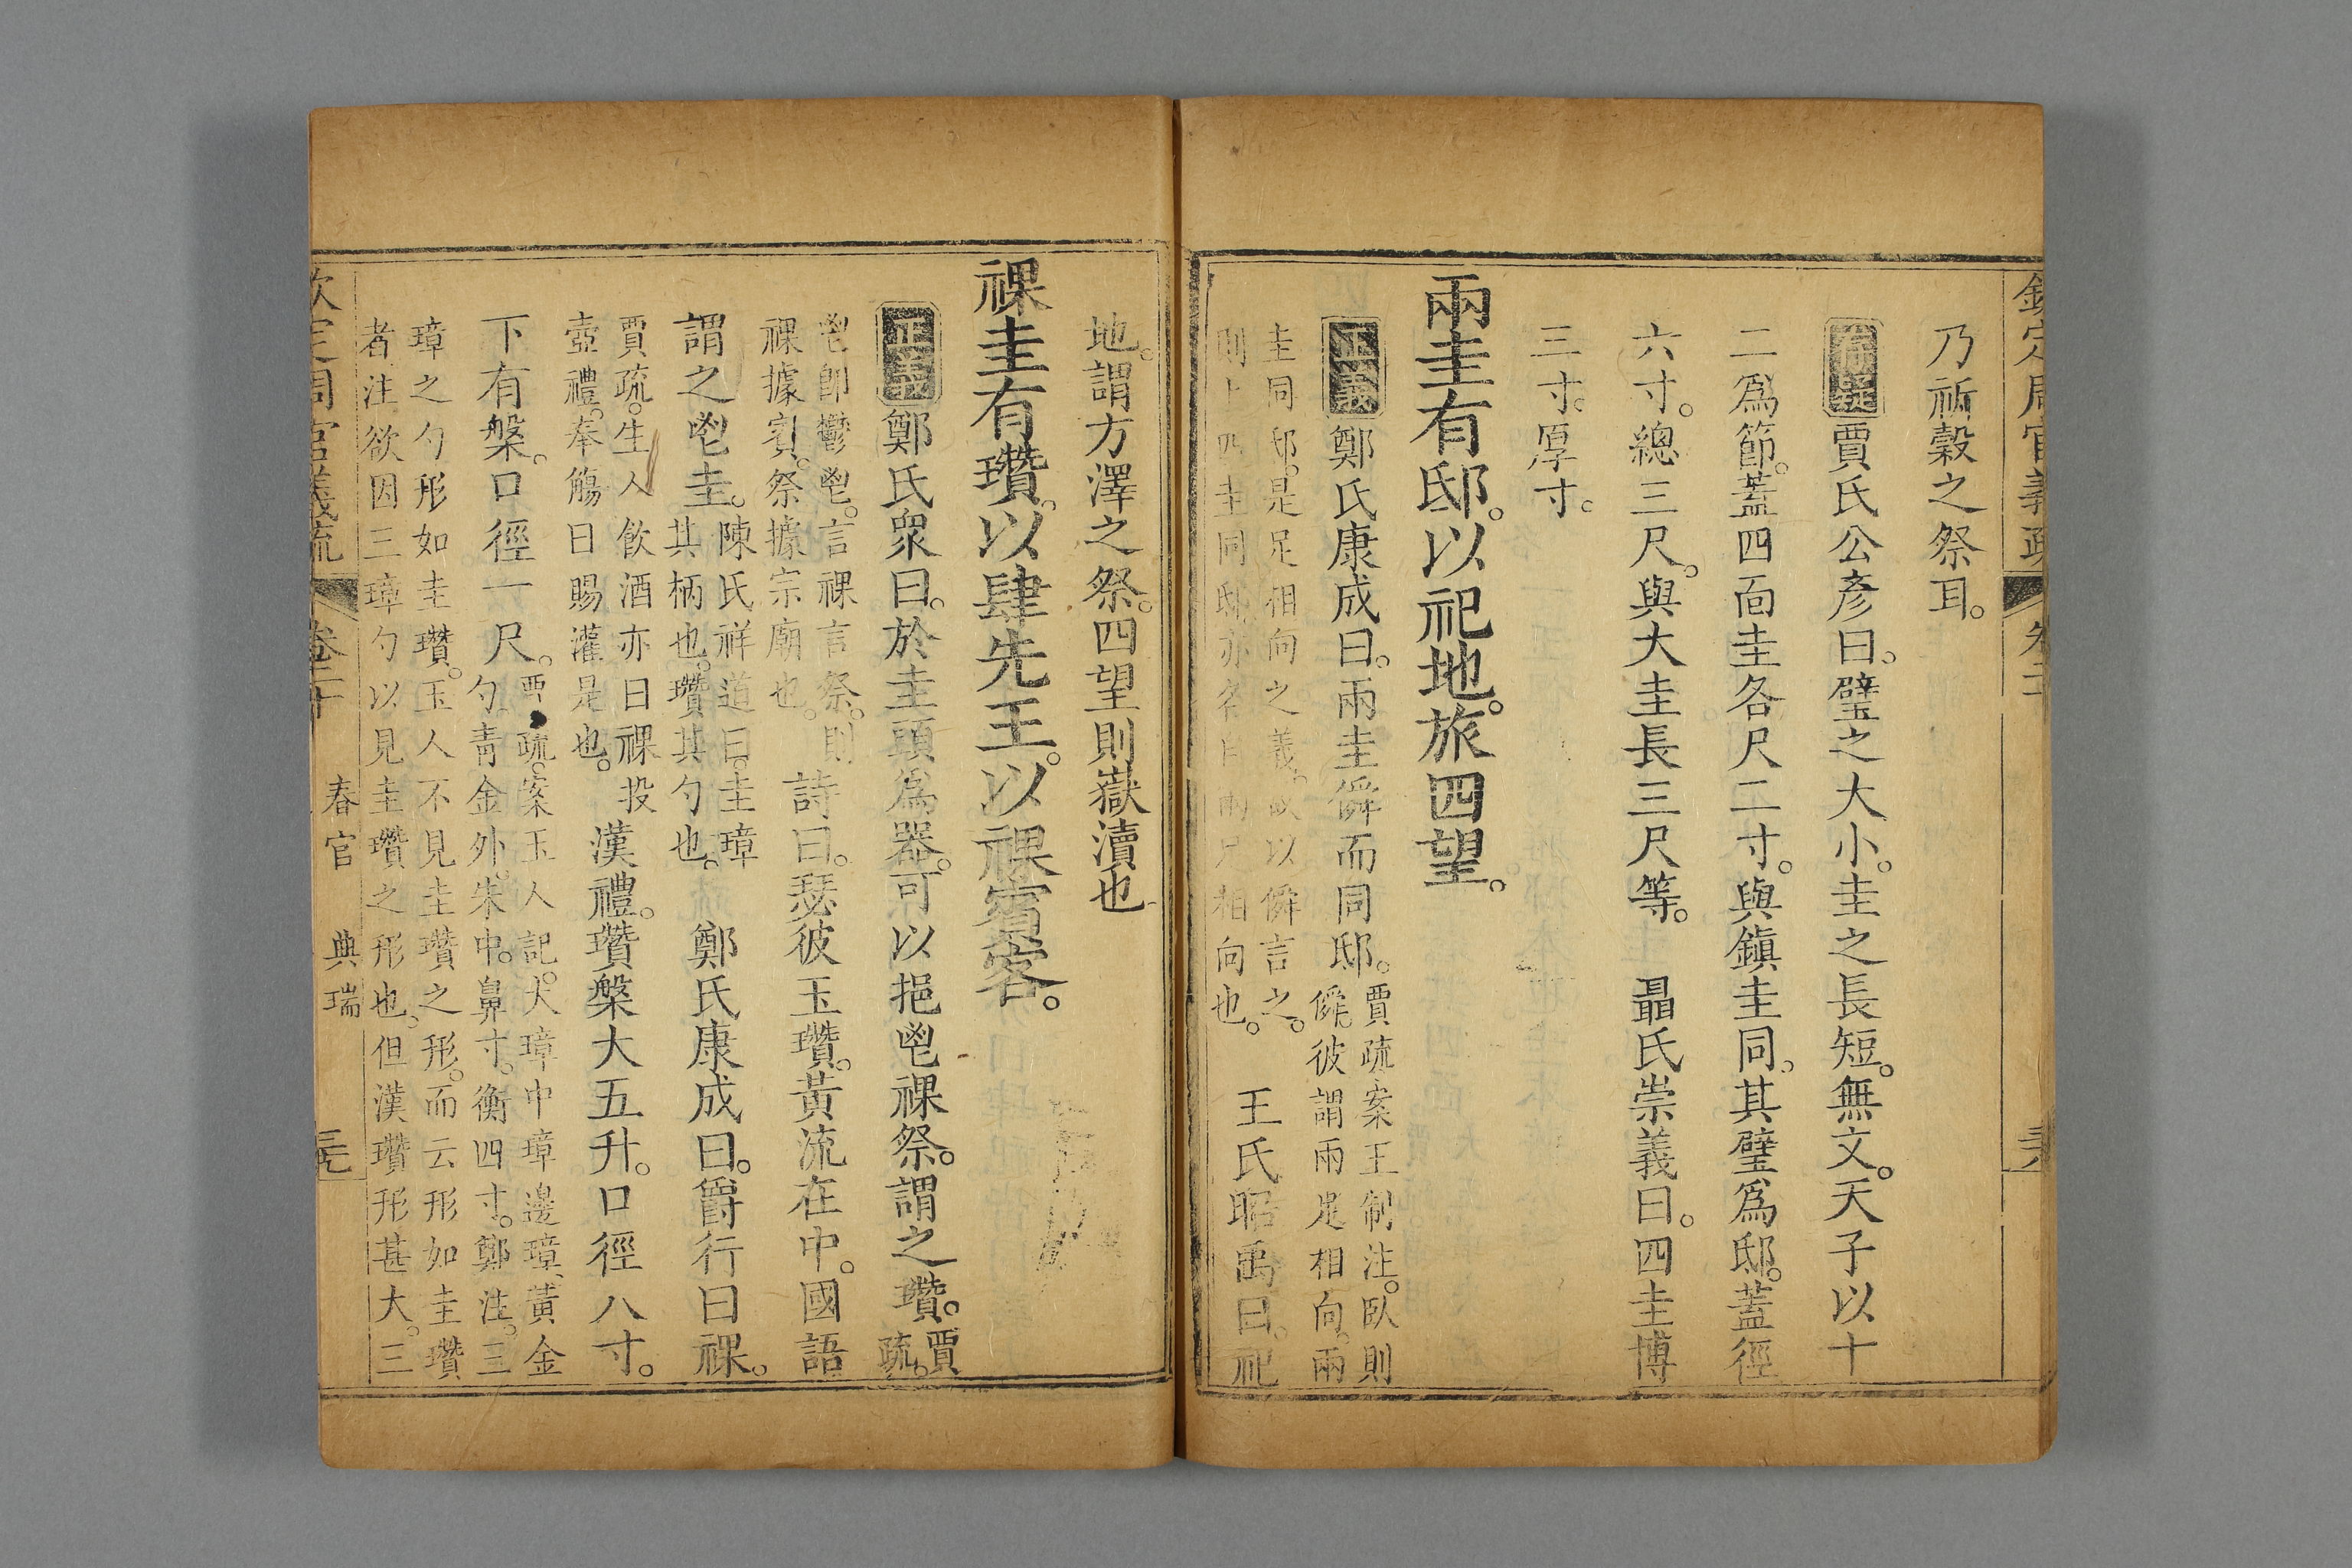 欽定周官義疏 卷二十 三十八
乃祈穀之祭耳。
存疑 賈氏公彥曰。璧之大小。圭之長短。無文。天子以十
二爲節。蓋四面圭各尺二寸。與鎭圭同。其璧爲邸。蓋徑
六寸。總三尺。與大圭長三尺等。 聶氏崇義曰。四圭博
三寸。厚寸。
兩圭有邸。以祀地。旅四望。
正義 鄭氏康成曰。兩圭僢而同邸。
賈疏案王制注。臥則
僢。彼謂兩足相向。兩
圭同邸。是足相向之義。故以僢言之。
則上四圭同邸。亦各自兩足相向也。
王氏昭禹曰。祀
地。謂方澤之祭。四望則嶽瀆也
祼圭有瓚。以肆先王。以祼賓客。
正義 鄭氏衆曰。於圭頭爲器。可以挹鬯祼祭。謂之瓚。
賈
疏。
鬯卽鬱鬯。言祼言祭。則
祼據賓。祭據宗廟也。
詩曰。瑟彼玉瓚。黃流在中。國語
謂之鬯圭。
陳氏祥道曰。圭璋
其柄也。瓚其勺也。
鄭氏康成曰。爵行曰祼。
賈疏。生人飮酒亦曰祼。投
壺禮。奉觴曰賜灌是也。
漢禮。瓚槃大五升。口徑八寸。
下有槃。口徑一尺。
賈疏。案玉人記。大璋中璋邊璋。黃金
勺。靑金外。朱中。鼻寸。衡四寸。鄭注。三
璋之勺形如圭瓚。玉人不見圭瓚之形。而云形如圭瓚
者。注欲因三璋勺以見圭瓚之形也。但漢瓚形甚大。三
欽定周官義疏 卷二十 春官 典瑞 三十九